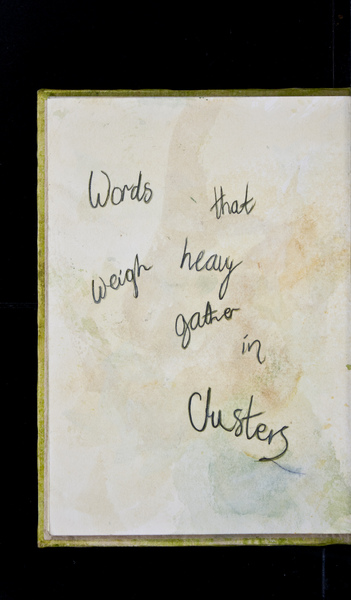 Words that
weigh heavy
gather
in
Clusters